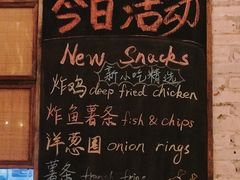 今日活动
New Snacks
新小吃精选
炸鸡 deep fried chicken
炸鱼薯条 fish & chips
洋葱圈 onion rings
薯条 french fries